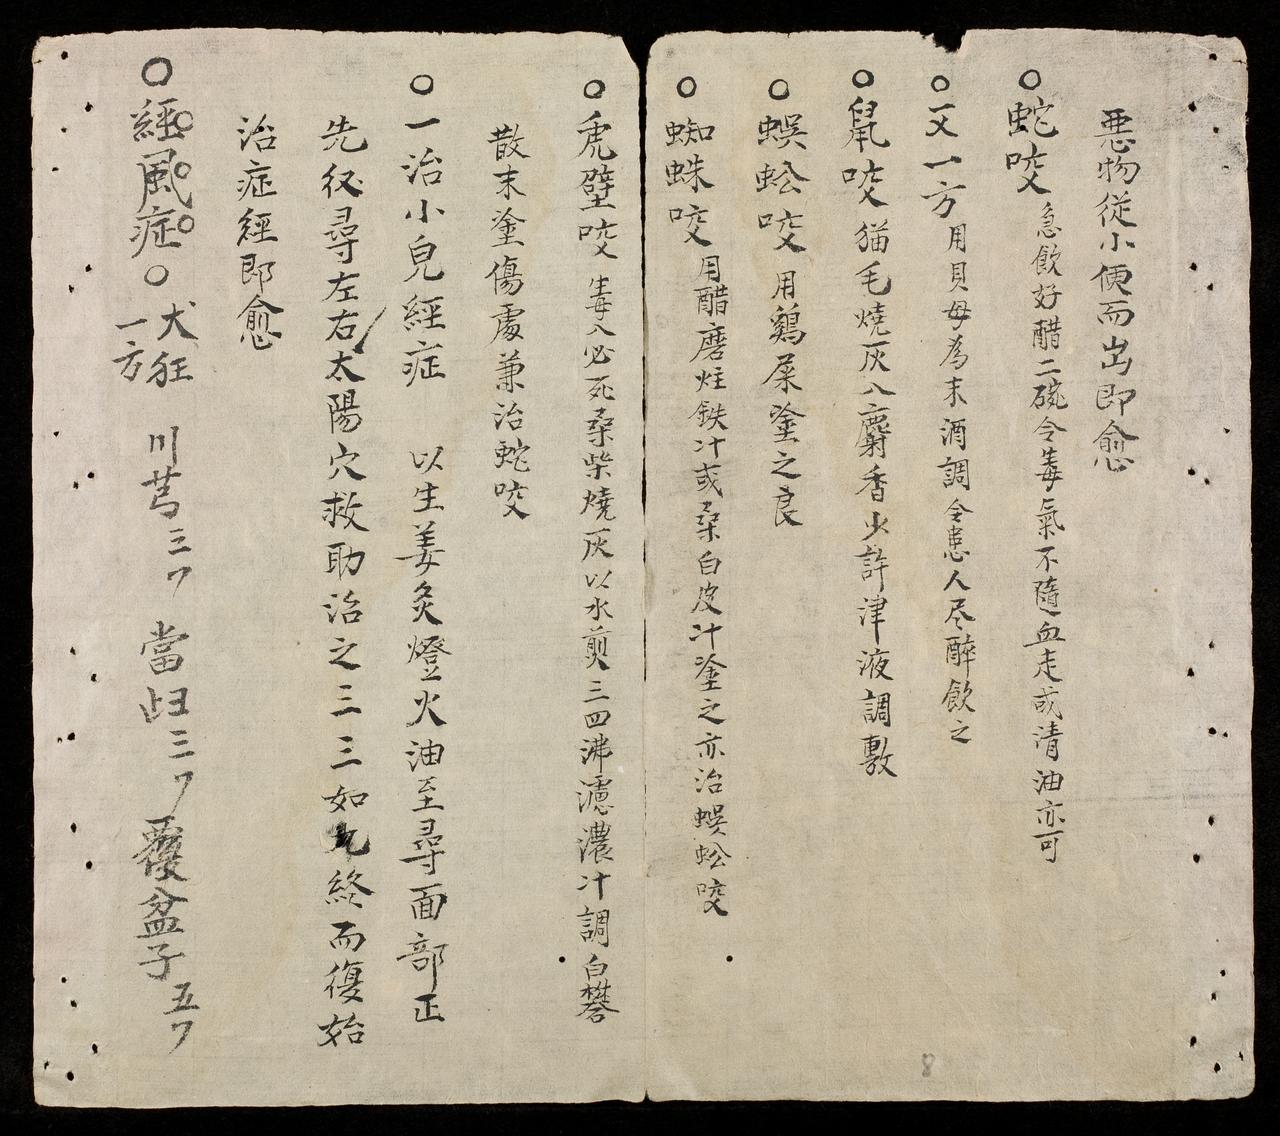 惡物從小便而出即愈
○蛇咬 急飲好醋二碗令毒氣不隨血走或清油亦可
○又一方 用貝母為末酒調令患人尽醉飲之
○鼠咬 猫毛燒灰入麝香少許津液調敷
○蜈蚣咬 用鷄屎塗之良
○蜘蛛咬 用醋磨炷鉄汁或桑白皮汁塗之亦治蜈蚣咬
○虎壁咬 生毒入必死桑柴燒灰以水煎三四沸濾濃汁調白礬
散末塗傷處兼治蛇咬
○一治小兒經症 以生姜灸燈火油至尋面部正
先伩尋左右太陽穴救助治之三三如 終而復始
治症經即愈
○經風症○犬狂一方 川芎三ワ 當㱕三ワ 覆盆子五ワ
8